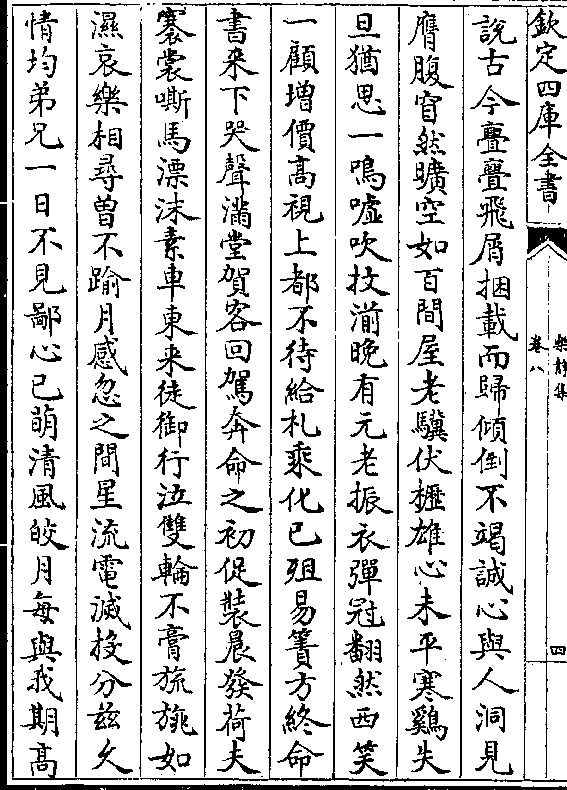 欽定四庫全書
樂靜集
卷八
四
說古今亹亹飛屑捆載而歸傾倒不竭誠心與人洞見
膺腹窅然曠空如百間屋老驥伏櫪雄心未平寒鷄失
旦猶思一鳴噓吹抆湔晚有元老振衣彈冠翻然西笑
一顧增價高視上都不待給札乘化已殂易簀方終命
書来下哭聲滿堂賀客回駕奔命之初促裝晨發荷夫
褰裳嘶馬漂沫素車東来徒御行泣雙輪不膏旒旐如
濕哀樂相尋曾不踰月感忽之間星流電滅投分兹久
情均弟兄一日不見鄙心已萌清風皎月每與我期高